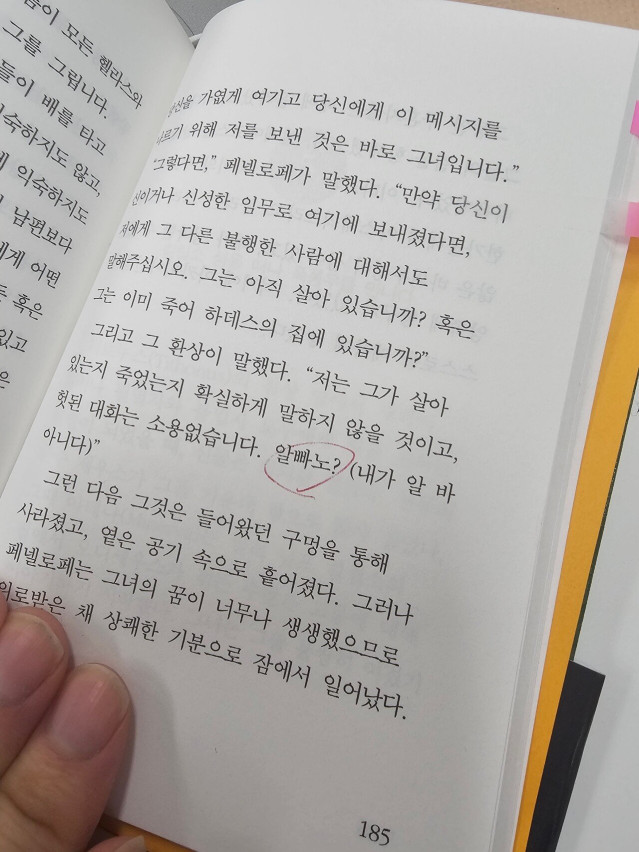 이 모든 헬라스와
그를 그립니다.
들이 배를 타고
익숙하지도 않고,
익숙하지도
남편보다
에게 어떤
혹은
있고
은
가엾게 여기고 당신에게 이 메시지를
위해 저를 보낸 것은 바로 그녀입니다.”
“그렇다면,” 페넬로페가 말했다. “만약 당신이
신이거나 신성한 임무로 여기에 보내졌다면,
저에게 그 다른 불행한 사람에 대해서도
말해주십시오. 그는 아직 살아 있습니까? 혹은
그는 이미 죽어 하데스의 집에 있습니까?”
그리고 그 환상이 말했다. “저는 그가 살아
있는지 죽었는지 확실하게 말하지 않을 것이고,
헛된 대화는 소용없습니다. 알빠노? (내가 알 바
아니다)”
그런 다음 그것은 들어왔던 구멍을 통해
사라졌고, 옅은 공기 속으로 흩어졌다. 그러나
페넬로페는 그녀의 꿈이 너무나 생생했으므로
위로받은 채 상쾌한 기분으로 잠에서 일어났다.
185